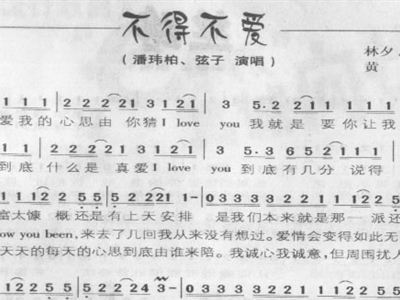 不得不爱
(潘玮柏、弦子 演唱)
林夕
黄
1 1 1 | 2 2 2 21 3 1 21 | 3 5. 2 21 1 1 1 1 1
爱我的心思由 你猜I love you我就是 要你让我
3. 3 652 1 1 1 1
到底 什么是 真爱I love you到底有几分 说得
1 2 2 5 5 | 5 2 2 21 1 - | 0 3 3 3 3 2 2 1 1 1 2 2 5 5
富太慷 概还是有上天安排 是我们本来就是那一派还
ow you been,来去了几回我从来没有想过。爱情会变得如此无
天天的每天的心思到底由谁来陪。我诚心我诚意,但周围扰人
1 1 2 2 5 5 | 5 5 2 2 24 3 - | 0 3 3 3 3 2 2 1 1 1 2 2 5 5